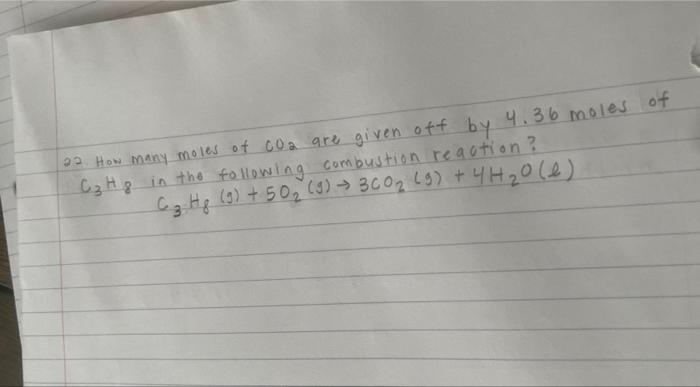 22. How many moles of CO2 are given off by 4.36 moles of
C3H8 in the following combustion reaction?
C3H8 (g) + 5O2 (g) → 3CO2 (g) + 4H2O (l)